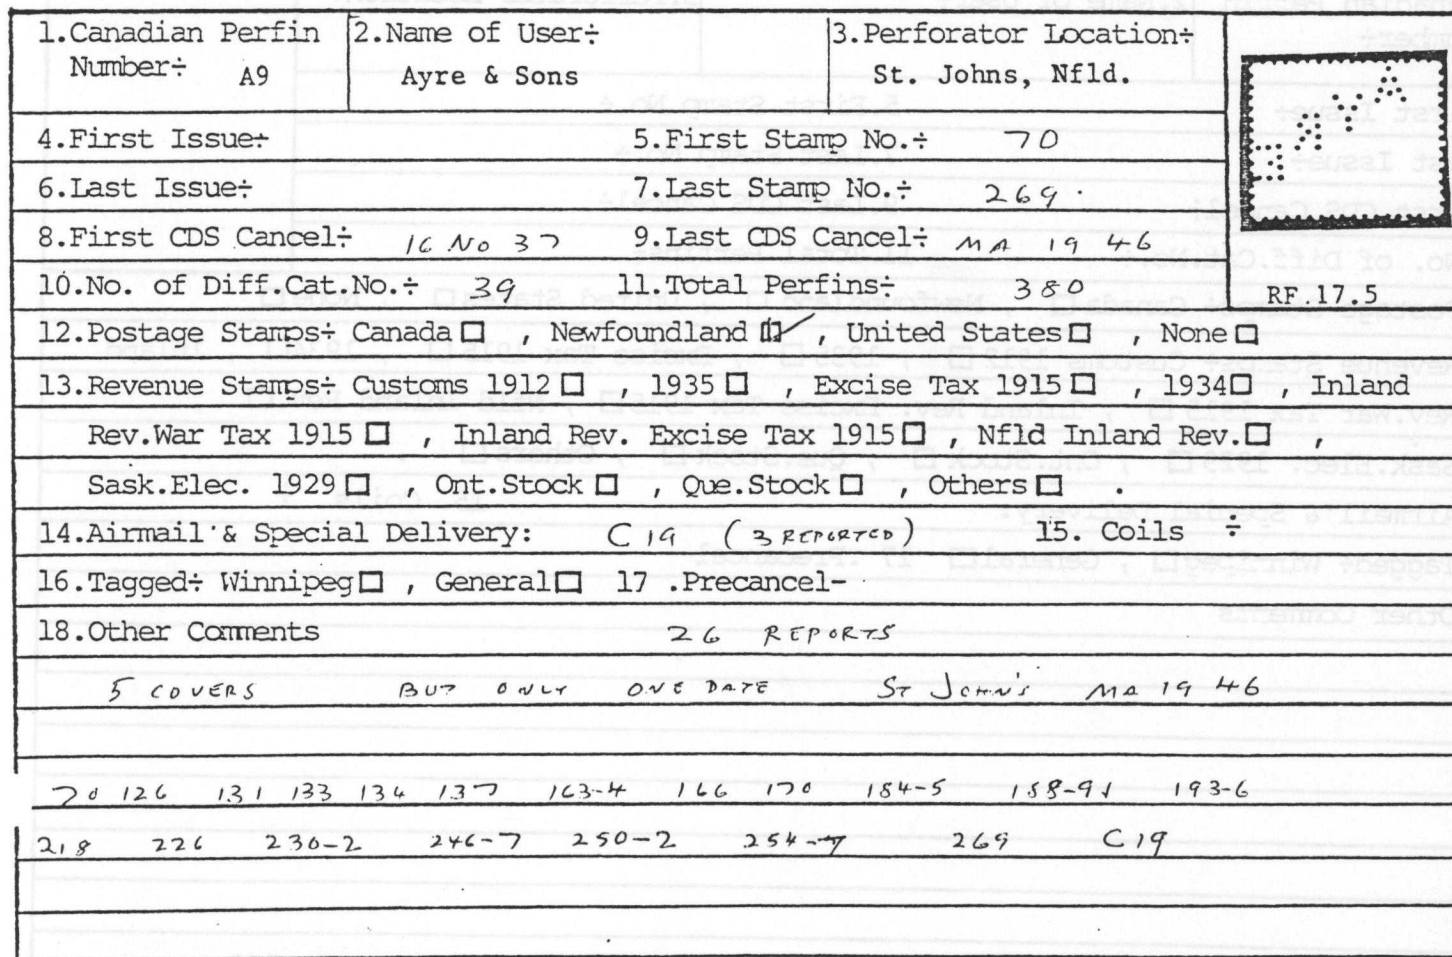 1.Canadian Perfin Number÷ A9
2.Name of User÷ Ayre & Sons
3.Perforator Location÷ St. Johns, Nfld.
4.First Issue÷ 5.First Stamp No.÷ 70
6.Last Issue÷ 7.Last Stamp No.÷ 269.
8.First CDS Cancel÷ 16 No 37 9.Last CDS Cancel÷ MA 19 46
10.No. of Diff.Cat.No.÷ 39 11.Total Perfins÷ 380
RF 17.5
12.Postage Stamps÷ Canada☐ , Newfoundland ☑ , United States☐ , None☐
13.Revenue Stamps÷ Customs 1912☐ , 1935☐ , Excise Tax 1915☐ ,1934☐ , Inland
Rev.War Tax 1915☐ , Inland Rev. Excise Tax 1915☐ , Nfld Inland Rev.☐ ,
Sask.Elec. 1929☐ , Ont.Stock☐ , Que.Stock☐ , Others☐ .
14.Airmail & Special Delivery: C19 (3 REPORTED) 15. Coils ÷
16.Tagged÷ Winnipeg☐ , General☐ 17 .Precancel-
18.Other Comments 26 REPORTS
5 COVERS BUT ONLY ONE DATE ST JOHN'S MA 19 46
70 126 131 133 134 137 163-4 166 170 184-5 188-91 193-6
218 226 230-2 246-7 250-2 254-7 269 C19